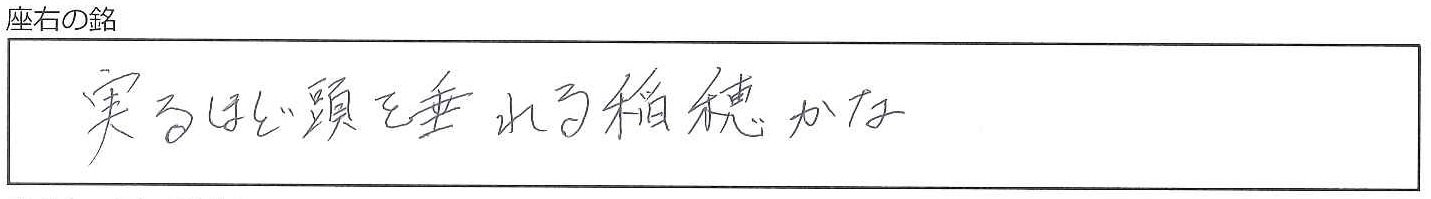 座右の銘
実るほど頭を垂れる稲穂かな